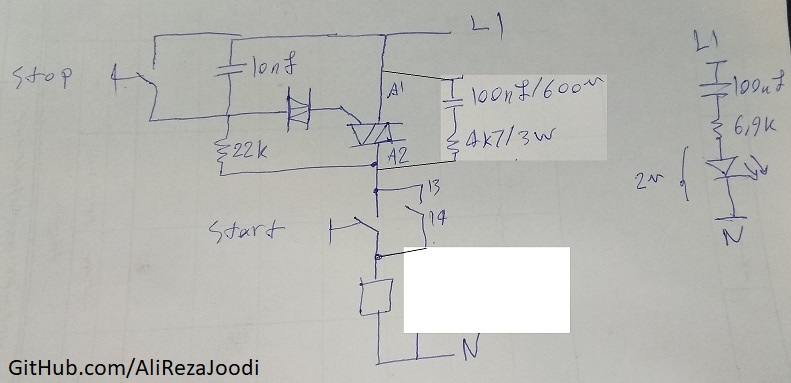 L1
Stop
10nf
A1
100nf/600v
4k7/3w
22k
A2
13
14
Start
N
L1
100nf
6,9k
2v
N
GitHub.com/AliRezaJoodi